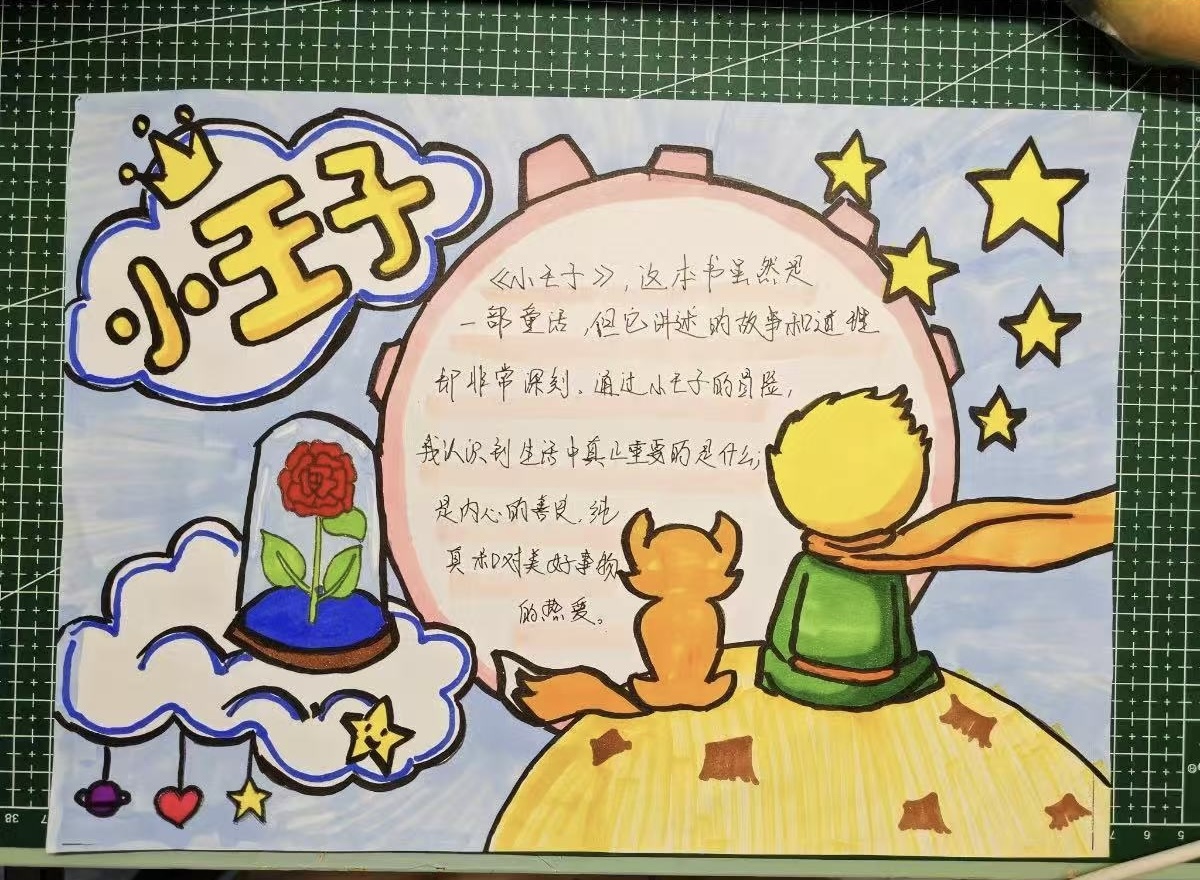 小王子
《小王子》，这本书虽然是
一部童话，但它讲述的故事和道理
却非常深刻。通过小王子的冒险，
我认识到生活中真正重要的是什么，
是内心的善良，纯
真和对美好事物
的热爱。
38
7
6
5